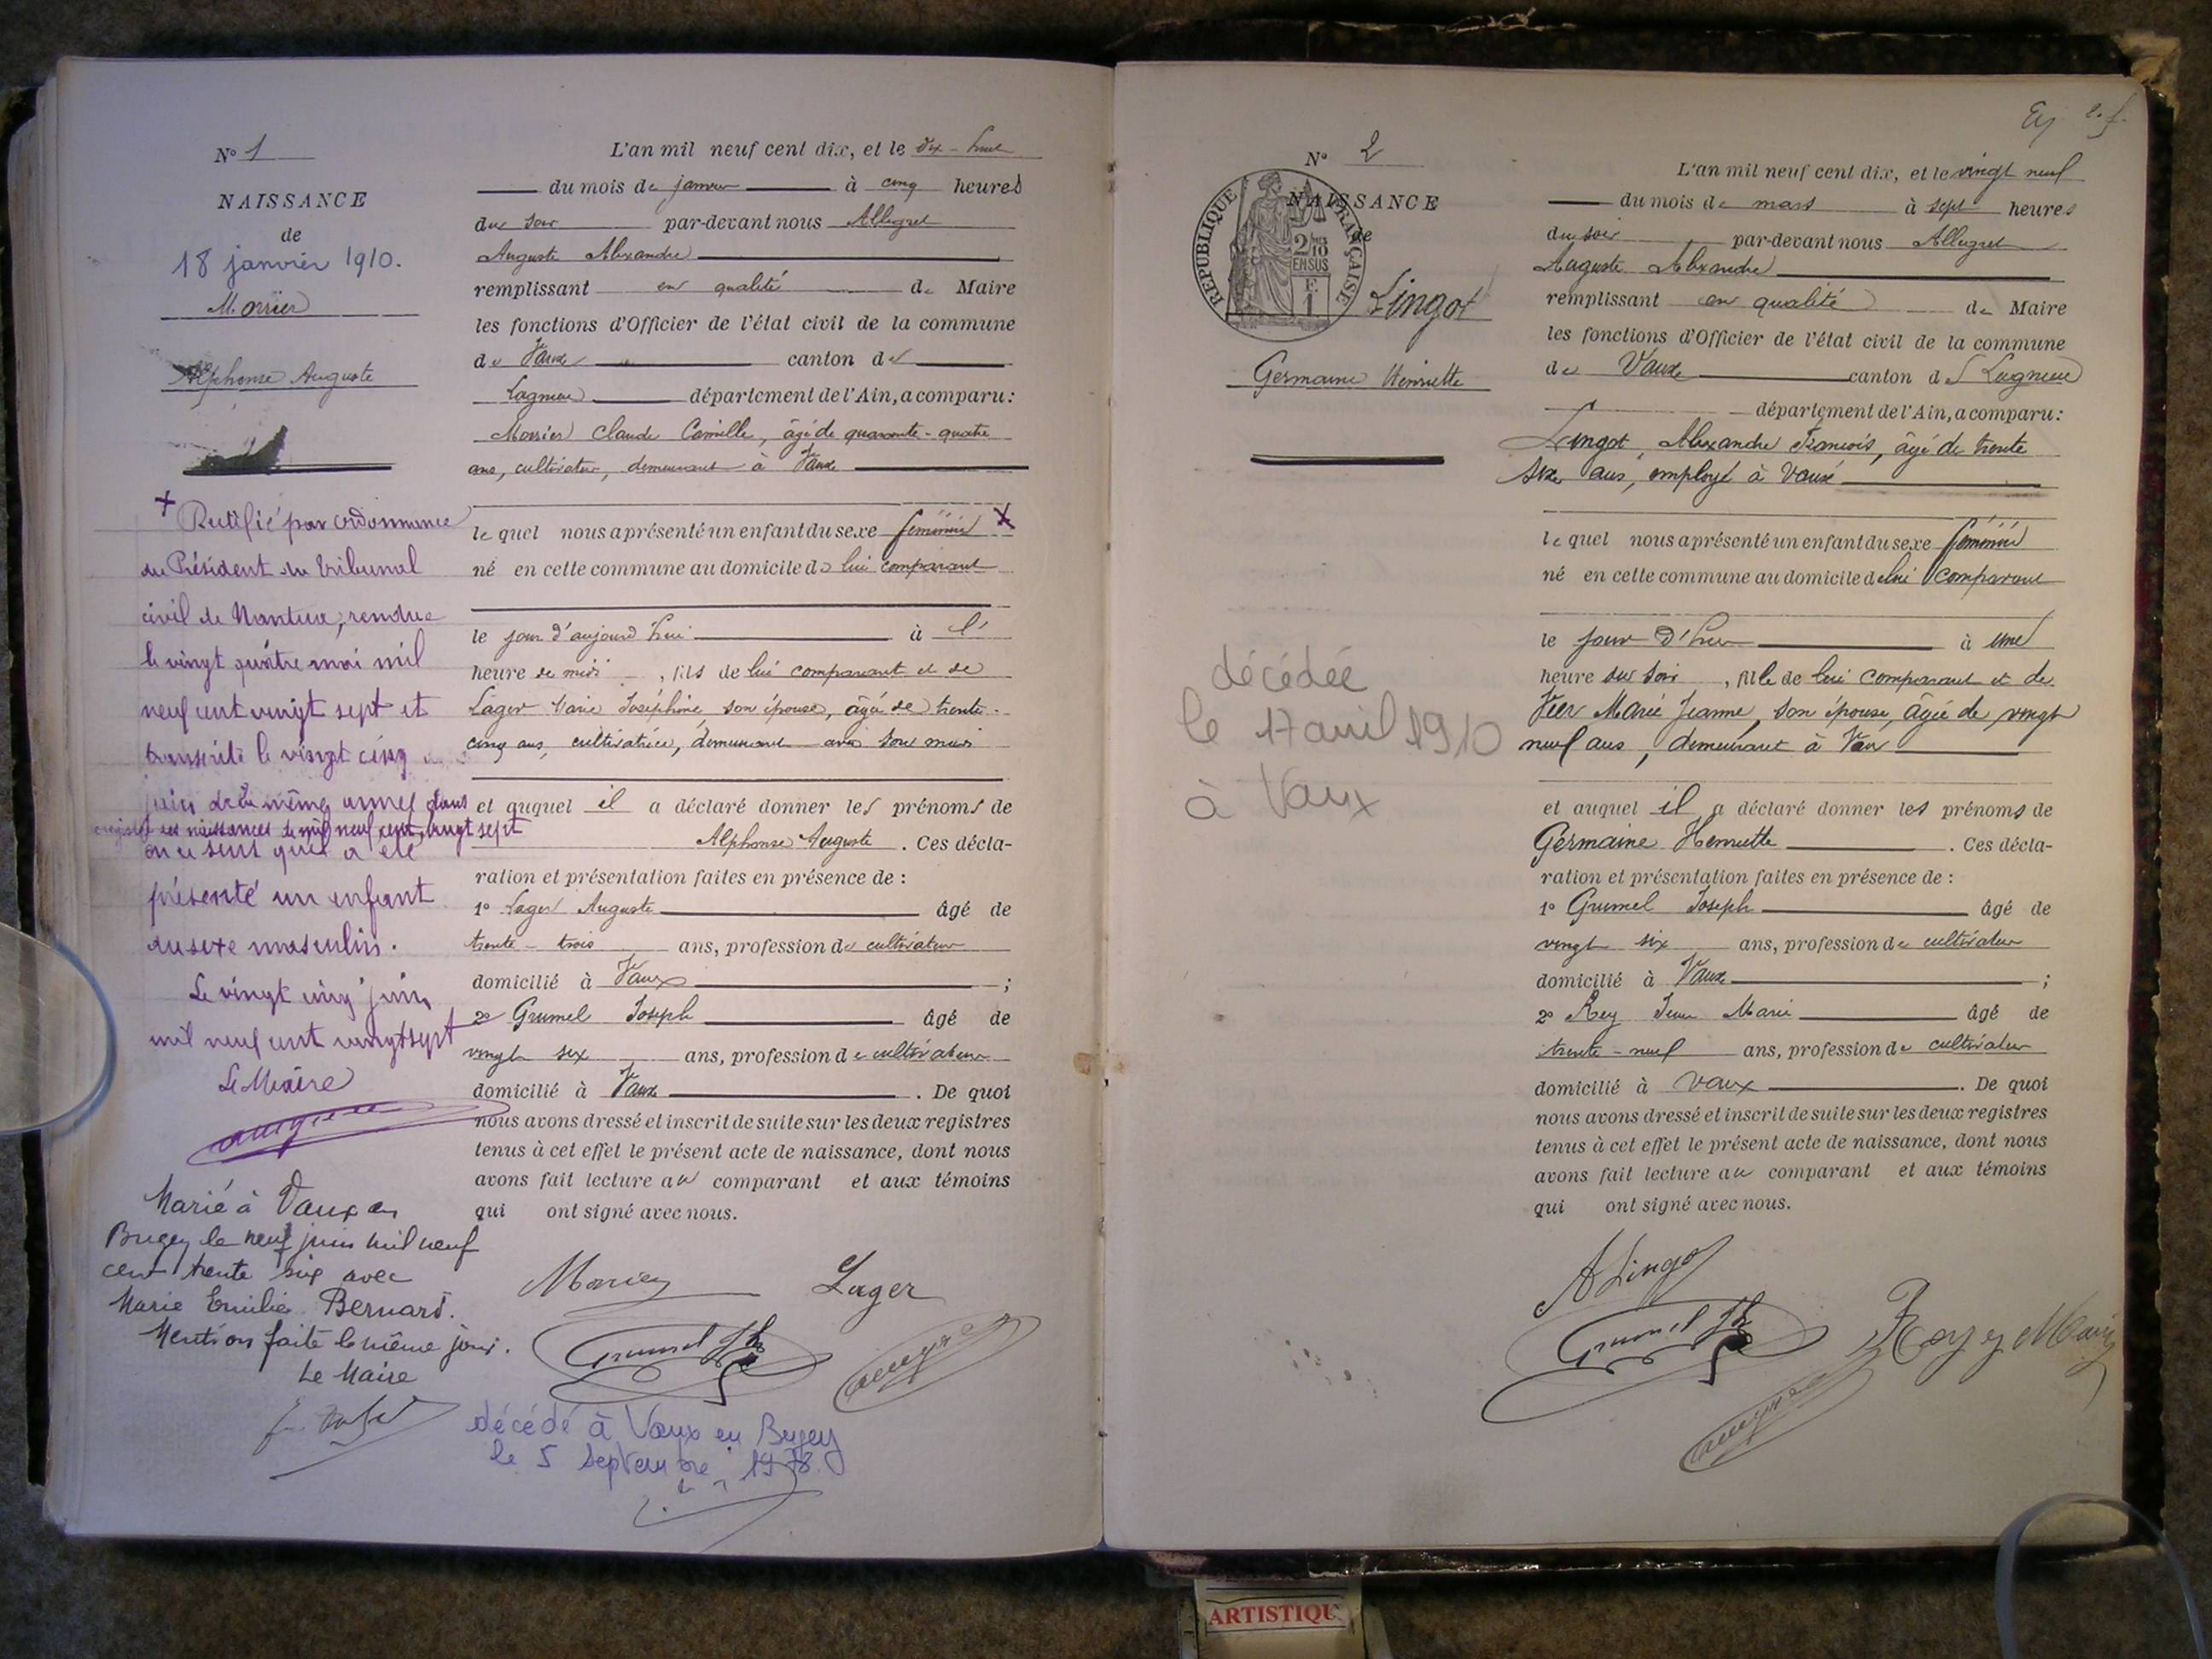 N° 1
NAISSANCE
de
18 janvier 1910.
Morrier
Alphonse Auguste
+ Rectifié par ordonnance
du Président du Tribunal
civil de Nantua, rendue
le vingt quatre mai mil
neuf cent vingt sept et
transcrite le vingt cinq
juin de la même année dans
registre des naissances de mil neuf cent vingt sept
en ce sens qu'il a été
présenté un enfant
du sexe masculin.
Le vingt cinq juin
mil neuf cent vingt sept
Le Maire
Marié à Vaux en
Bugey le neuf juin mil neuf
cent trente six avec
Marie Emilie Bernard.
Mention faite le même jour.
Le Maire
L'an mil neuf cent dix, et le dix-huit
du mois de janvier à cinq heures
du soir par-devant nous Allegret
Auguste Alexandre
remplissant en qualité de Maire
les fonctions d'Officier de l'état civil de la commune
de Vaux canton de
Lagnieu département de l'Ain, a comparu :
Morrier Claude Camille, âgé de quarante-quatre
ans, cultivateur, demeurant à Vaux
lequel nous a présenté un enfant du sexe féminin X
né en cette commune au domicile de lui comparant
le jour d'aujourd'hui à l'
heure de midi, fils de lui comparant et de
Lager Marie Joséphine son épouse, âgée de trente-
cinq ans, cultivatrice, demeurant avec son mari
et auquel il a déclaré donner les prénoms de
Alphonse Auguste. Ces décla-
ration et présentation faites en présence de :
1° Lager Auguste âgé de
trente-trois ans, profession de cultivateur
domicilié à Vaux ;
2° Grumel Joseph âgé de
vingt six ans, profession de cultivateur
domicilié à Vaux. De quoi
nous avons dressé et inscrit de suite sur les deux registres
tenus à cet effet le présent acte de naissance, dont nous
avons fait lecture au comparant et aux témoins
qui ont signé avec nous.
Morrier Lager
Grumel Jh
décédé à Vaux en Bugey
le 5 septembre 1978.
N° 2
NAISSANCE
de
RÉPUBLIQUE FRANÇAISE
2/10
EN SUS
F.
1
Lingot
Germaine Henriette
décédée
le 17 avril 1910
à Vaux
L'an mil neuf cent dix, et le vingt neuf
du mois de mars à sept heures
du soir par-devant nous Allegret
Auguste Alexandre
remplissant en qualité de Maire
les fonctions d'Officier de l'état civil de la commune
de Vaux canton de Lagnieu
département de l'Ain, a comparu :
Lingot, Alexandre François, âgé de trente
six ans, employé à Vaux
lequel nous a présenté un enfant du sexe féminin
né en cette commune au domicile de lui comparant
le jour d'hier à une
heure du soir, fille de lui comparant et de
Marie Jeanne, son épouse, âgée de vingt
neuf ans, demeurant à Vaux
et auquel il a déclaré donner les prénoms de
Germaine Henriette. Ces décla-
ration et présentation faites en présence de :
1° Grumel Joseph âgé de
vingt six ans, profession de cultivateur
domicilié à Vaux ;
2° Rey Jean Marie âgé de
trente-neuf ans, profession de cultivateur
domicilié à Vaux. De quoi
nous avons dressé et inscrit de suite sur les deux registres
tenus à cet effet le présent acte de naissance, dont nous
avons fait lecture au comparant et aux témoins
qui ont signé avec nous.
A Lingot
Grumel Jh
ARTISTIQU